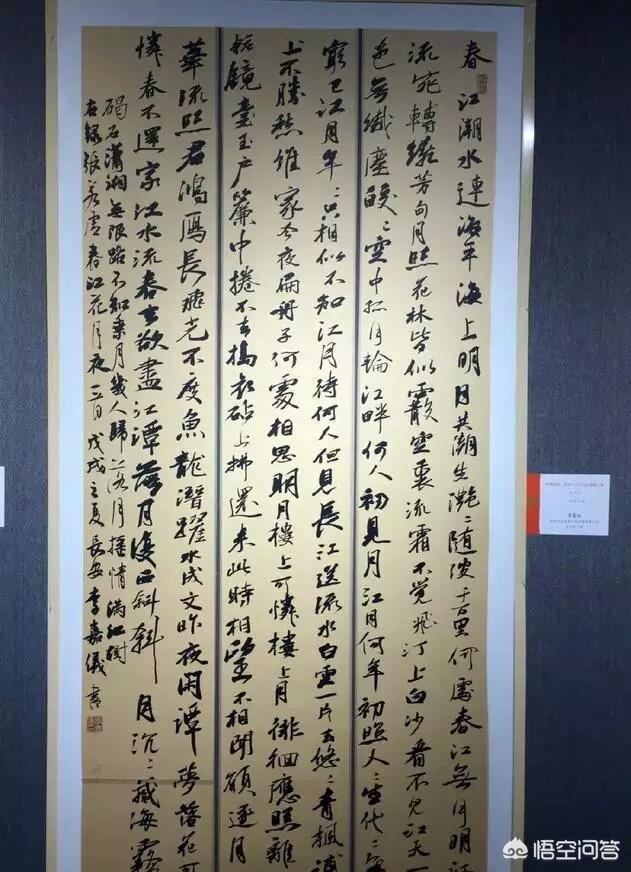 春江潮水連海平海上明月共潮生灩〻隨波千里何處春江無月明江
流宛轉繞芳甸月照花林皆似霰空裏流霜不覺飛汀上白沙看不見江天一
色無纖塵皎〻空中孤月輪江畔何人初見月江月何年初照人〻生代〻無
窮已江月年〻只相似不知江月待何人但見長江送流水白雲一片去悠〻青楓浦
上不勝愁誰家今夜扁舟子何處相思明月樓上可憐樓上月徘徊應照離
粧鏡臺玉户簾中捲不去搗衣砧上拂還来此時相望不相聞願逐月
華流照君鴻雁長飛光不度魚龍潛躍水成文昨夜閑潭夢落花可
憐春不還家江水流春去欲盡江潭落月復西斜斜月沉〻藏海霧
碣石瀟湘無限路不知乘月幾人歸落月搖情滿江樹
右錄張若虛春江花月夜一首戊戌立夏長安李嘉儀書
悟空问答